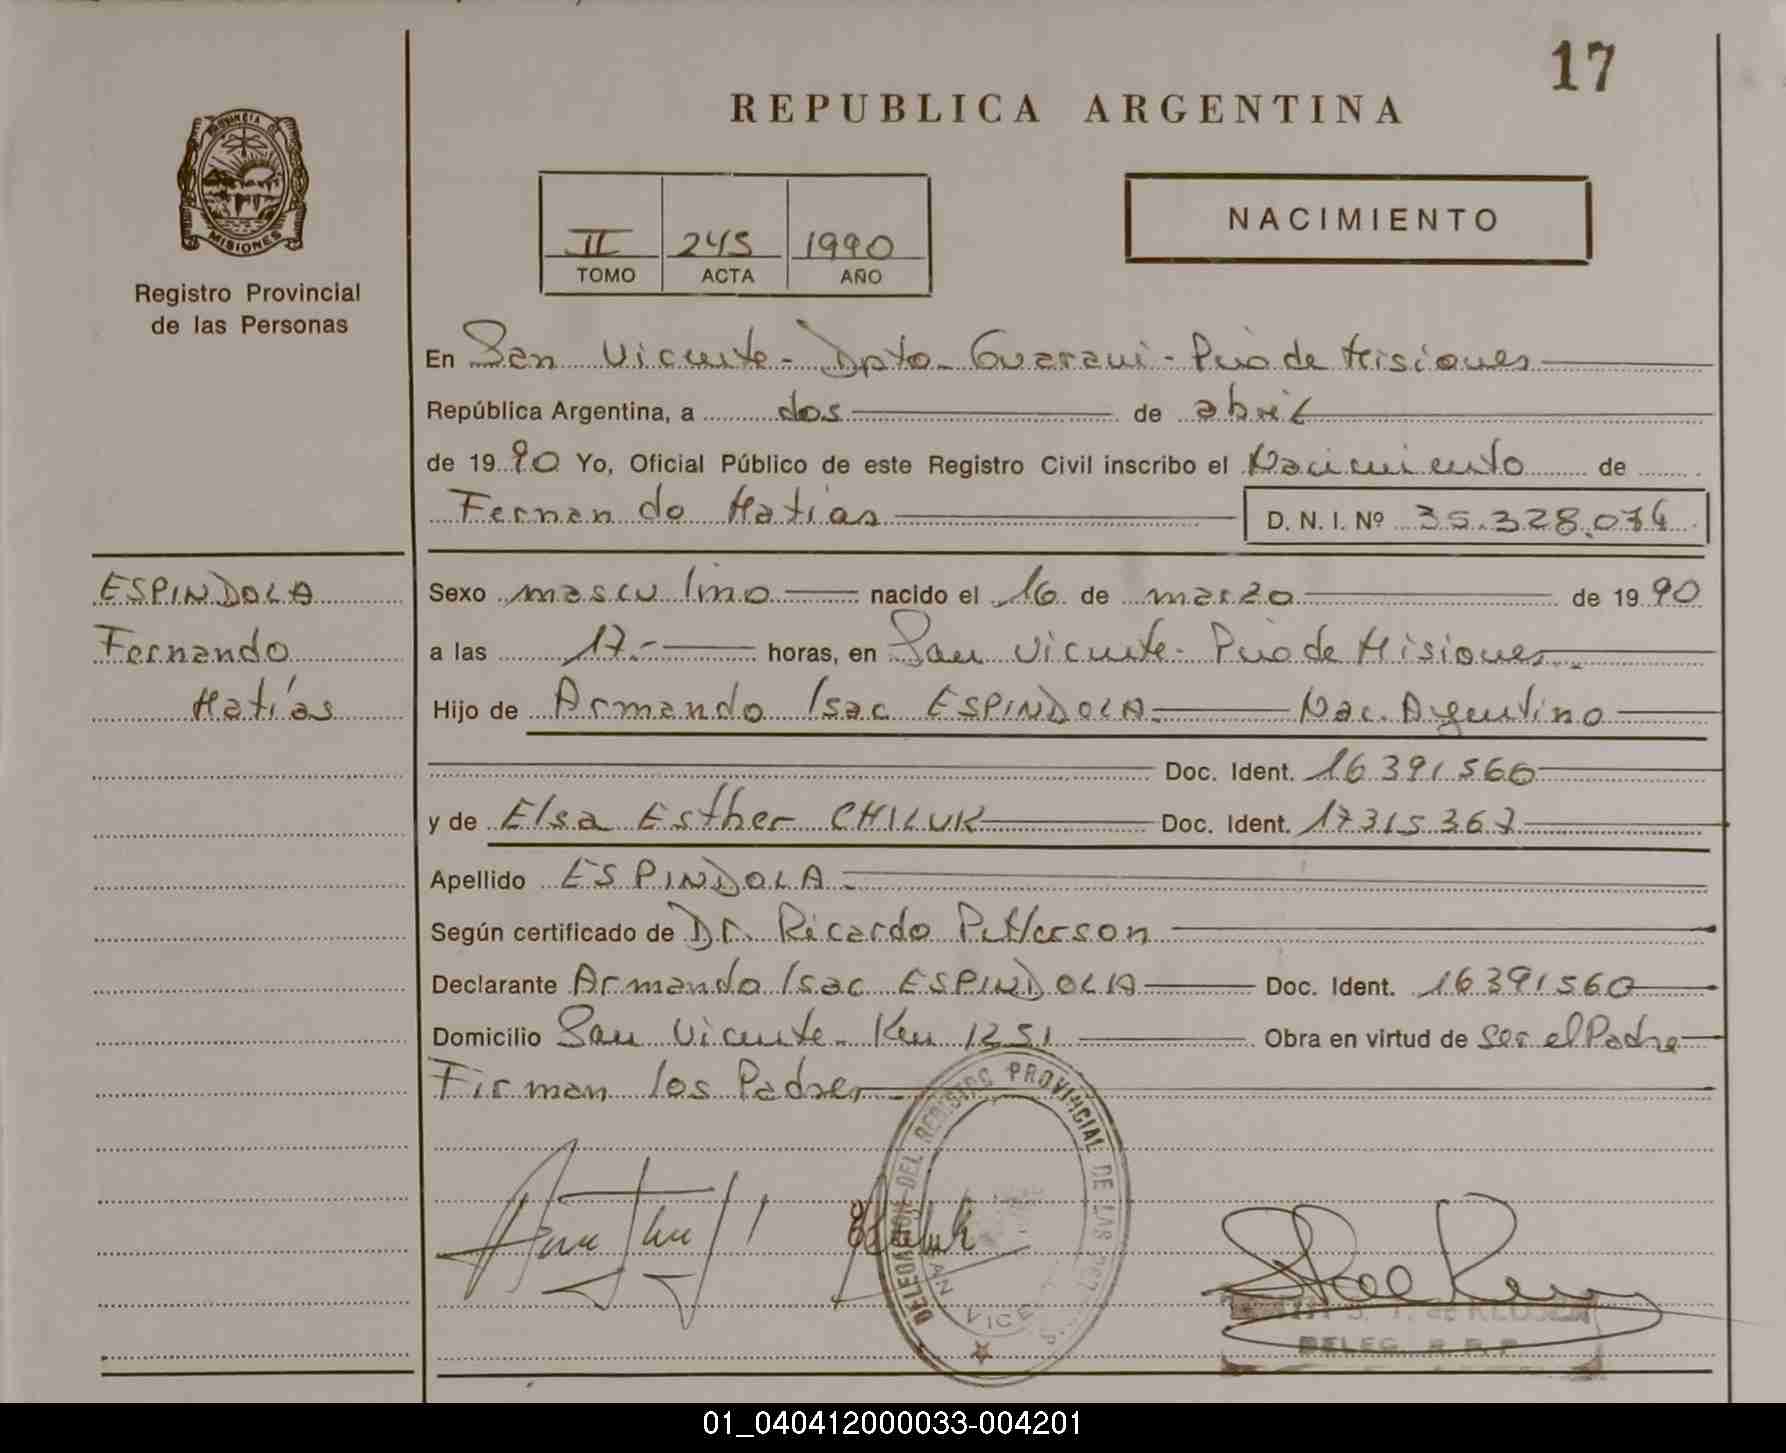 17
REPUBLICA ARGENTINA
PROVINCIA DE
MISIONES
Registro Provincial
de las Personas
II 245 1990
TOMO ACTA AÑO
NACIMIENTO
En San Vicente - Dpto. Guaraní - Pcia de Misiones
República Argentina, a dos de abril
de 1990 Yo, Oficial Público de este Registro Civil inscribo el Nacimiento de
Fernando Matías D. N. I. Nº 35.328.074
ESPINDOLA
Fernando
Matías
Sexo masculino nacido el 16 de marzo de 1990
a las 17.- horas, en San Vicente - Pcia de Misiones
Hijo de Armando Isac ESPINDOLA. Nac. Argentino
Doc. Ident. 16391560
y de Elsa Esther CHILUK Doc. Ident. 17315367
Apellido ESPINDOLA.
Según certificado de Dr. Ricardo Petterson
Declarante Armando Isac ESPINDOLA Doc. Ident. 16391560
Domicilio San Vicente - Km 1251 Obra en virtud de ser el Padre
Firman los Padres
DELEGACION DEL REGISTRO PROVINCIAL DE LAS
DELEG. R.R.P.
01_040412000033-004201